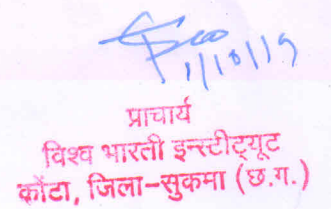 1/10/19
प्राचार्य
विश्व भारती इन्स्टीट्यूट
कोंटा, जिला-सुकमा (छ.ग.)